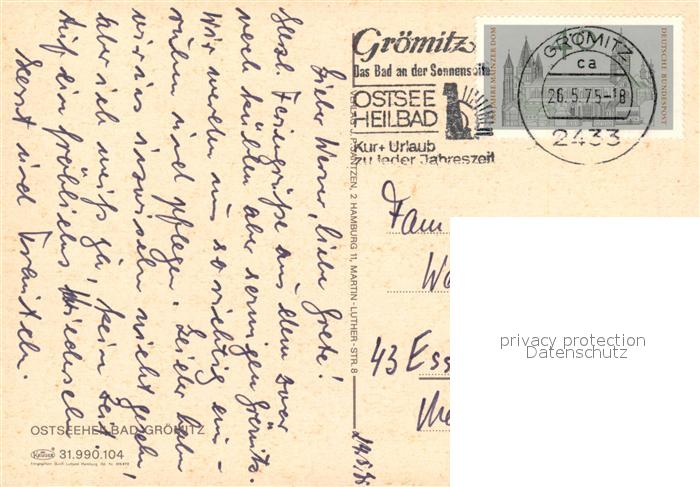 Grömitz
Das Bad an der Sonnenseite
OSTSEE
HEILBAD
Kur + Urlaub
zu jeder Jahreszeit
JAHRE MAINZER DOM
DEUTSCHE BUNDESPOST
GRÖMITZ
ca
26.5.75-18
2433
Lieber Werner, liebe Grete!
Herzl. Feriengrüße aus dem zwar
noch kühlen aber sonnigen Grömitz.
Wir werden uns so richtig ein-
ruhen und pflegen. Leider haben
wir uns inzwischen nicht gesehen,
aber ich weiß ja, keine Zeit.
Auf ein fröhliches Wiedersehn
Horst und Fräulein.
J. P. FRANTZEN, 2 HAMBURG 11, MARTIN-LUTHER-STR. 8
Fam
43 Ess
OSTSEEHEILBAD GRÖMITZ
Krüger
31.990.104
privacy protection
Datenschutz